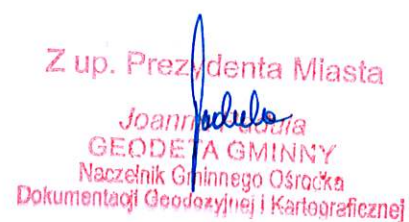 Z up. Prezydenta Miasta
Joanna
GEODETA GMINNY
Naczelnik Gminnego Ośrodka
Dokumentacji Geodezyjnej i Kartograficznej